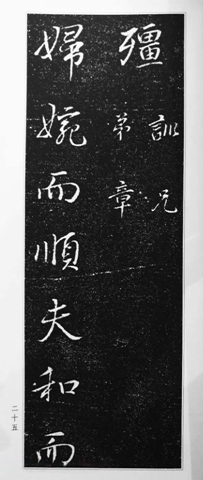 彊
訓兄
弟章
婦婉而順夫和而
二十五